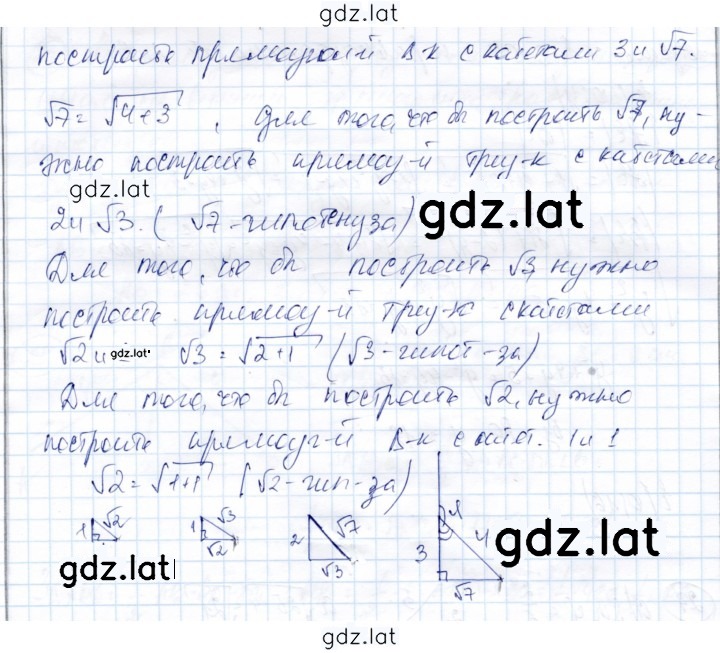 gdz.lat
построить прямоугольй Δ-к с катетами 3 и √7.
√7 = √4+3 , Для того, что бы построить √7, ну-
жно построить прямоу-й треу-к с катетами
gdz.lat
2 и √3. ( √7 - гипотенуза)
gdz.lat
Для того, что бы построить √3, нужно
построить прямоу-й треу-к с катетами
√2 и gdz.lat √3 = √2+1 (√3 - гипот-за)
Для того, что бы построить √2, нужно
построить прямоуг-й Δ-к с катет. 1 и 1
√2 = √1+1 (√2 - гип-за)
1 √2 1 √3 √2 2 √7 √3 3 4 √7
gdz.lat
gdz.lat
gdz.lat